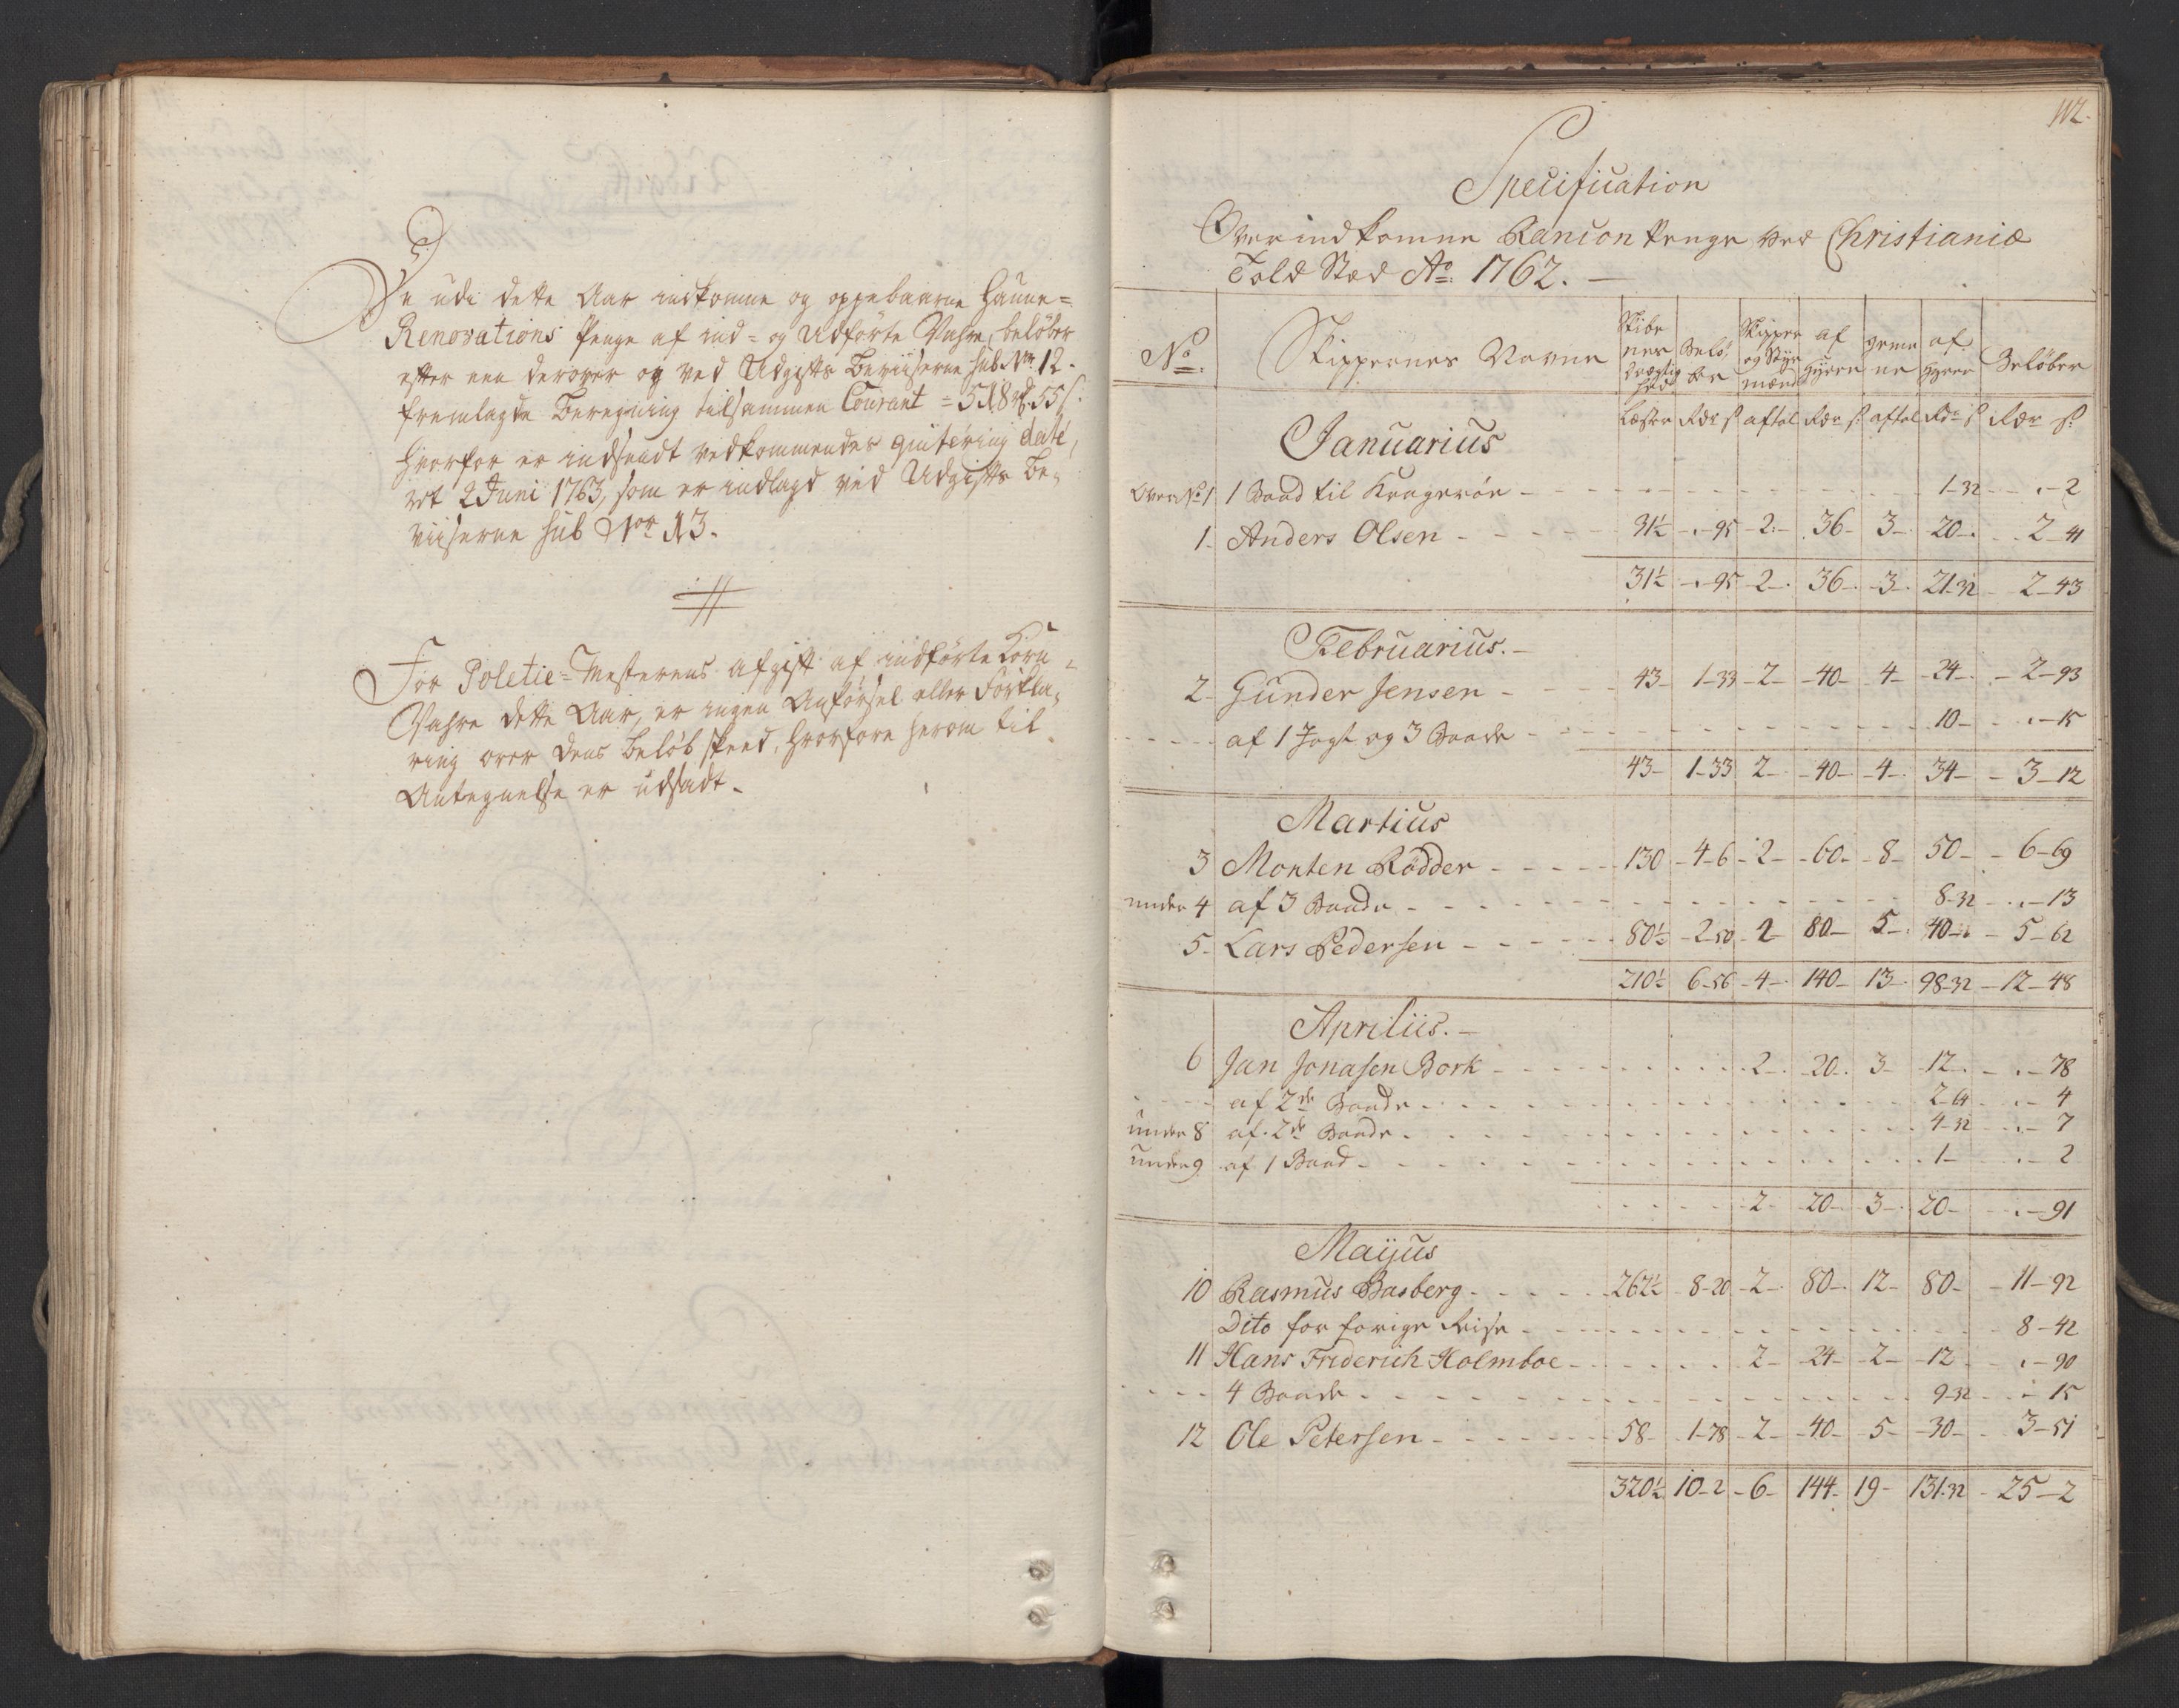 De udi dette Aar indkomne og oppebaarne Haune=
Renovations Penge af ind= og udførte Vahre, beløber
efter een derover og ved Udgifts Beviiserne sub Nr. 12.
fremlagde Beregning tilsammen Courant = 518 rd. 55 s.
hvorfor er indsendt vedkommendes quitering date=
ret 2 Juni 1763, som er indlagd ved Udgifts Be=
viiserne sub Nor 13.
For Poletie=Mesterens afgift af indførte Korn=
Vahre dette Aar, er ingen Anførsel eller Forkla=
ring over dens beløb skeed, hvorfore herom til
Antegnelse er udsadt.
112.
Specification
Over indkomne Rancon Penge ved Christianiæ
Told Sted Ao. 1762.
No. Skippernes Navne Skibenes drægtighed Beløber Skipper og Styrmænd af hyren gemene af hyren Beløber
Læster Rdr s aftal Rdr s aftal Rdr s Rdr s
Januarius
Over No 1 1 Baad til Kragerøe 1-32 .-2
1. Anders Olsen 31½ .-95 2 36 3 20 2-41
31½ .-95 2 36 3 21-32 2-43
Februarius.
2. Gunder Jensen 43 1-33 2 40 4 24 2-93
af 1 Jagt og 3 Baade 10 .-15
43 1-33 2 40 4 34 3-12
Martius
3 Morten Rödder 130 4-6 2 60 8 50 6-69
under 4 af 3 Baade 8-32 .-13
5. Lars Pedersen 80½ 2-50 2 80 5 40 5-62
210½ 6-56 4 140 13 98-32 12-48
Aprilis.
6 Jan Jonasen Bork 2 20 3 12 .-78
af 2de Baade 2-64 .-4
under 8 af 2de Baade 4-32 .-7
under 9 af 1 Baad 1 .-2
2 20 3 20 .-91
Maijus
10 Rasmus Basberg 262½ 8-20 2 80 12 80 11-92
Dito for forige Reise 8-42
11 Hans Friderich Holmboe 2 24 2 12 .-90
4 Baade 9-32 .-15
12 Ole Petersen 58 1-78 2 40 5 30 3-51
320½ 10-2 6 144 19 131-32 25-2